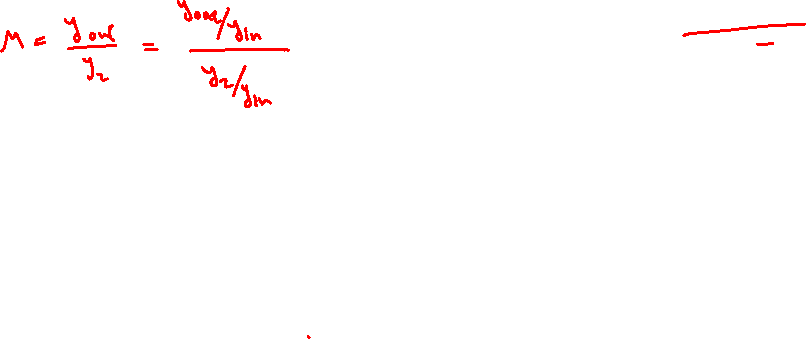 M = y_out / y_2 = (y_out / y_in) / (y_2 / y_in)